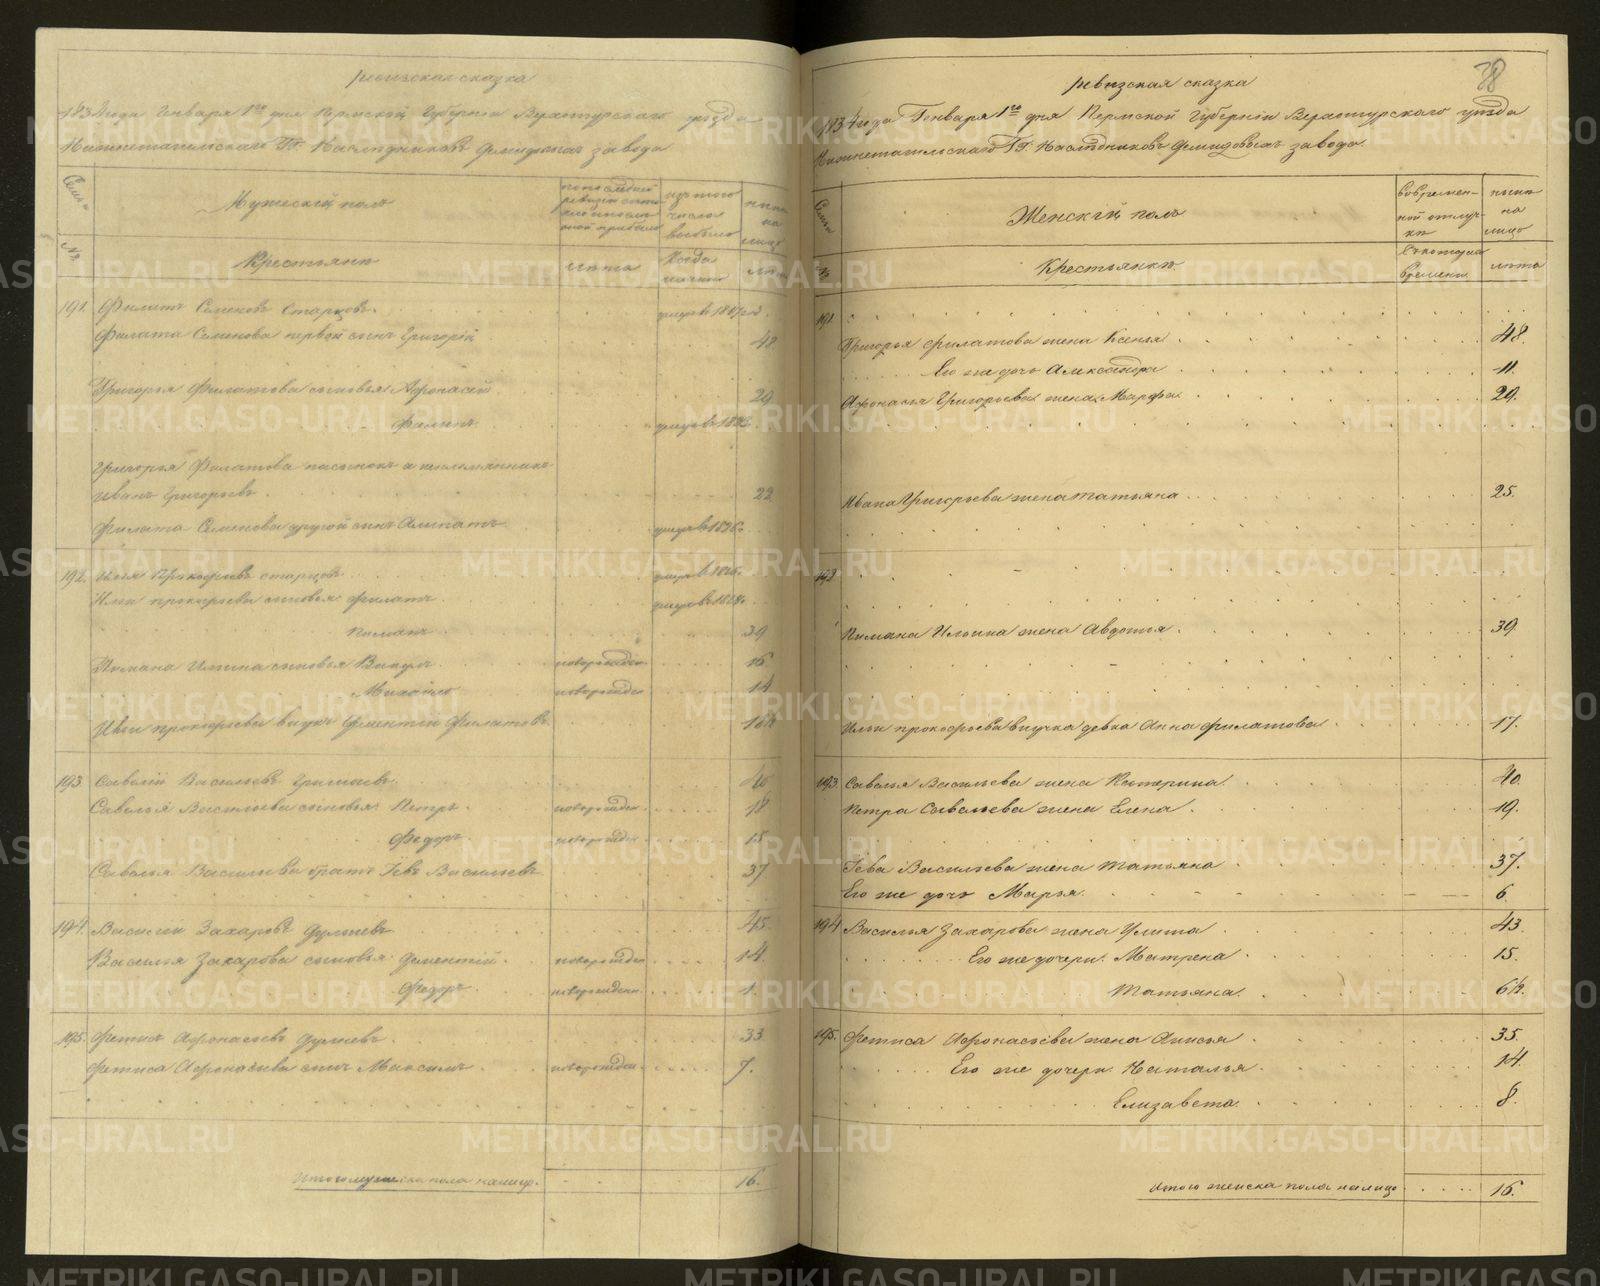 ревизская сказка
1834 года Генваря 1го дня Пермской Губернии Верхотурского уезда
Нижнетагильского Гг. Наследниковъ Демидовыхъ завода
Семьи
№
Мужеский полъ
по последней ревизии состояло и после оной прибыло
изъ того числа выбыло
ныне на лицо
Крестьяне
лета
Когда именно
лета
191. Филатъ Семеновъ Старцовъ. умеръ в
Филата Семенова первой сынъ Григорий 48
Григорья Филатова сыновья: Афонасей 29
Филипъ умеръ в
Григорья Филатова пасынокъ а
Иванъ Григорьевъ 22
Филата Семенова другой сынъ умеръ в 1826.
192. Илья Прокофьевъ старцовъ умеръ в
Ильи прокофьева сыновья: Филатъ умеръ в 1828.
Пиманъ 39
Пимана Ильина сыновья новорожден. 16
Михайло новорожден 14
Ильи прокофьева внукъ Дементий Филатовъ
193 Савелий Васильевъ 40
Савелья Васильева сыновья: Петръ новорожден. 18
Федоръ новорожден 15
Савелья Васильева братъ Иевъ Васильевъ 37
194. Василий Захаровъ 45.
Василья Захарова сыновья: Дементий новорожден 14.
Федоръ новорожденн. 1.
195. Фетисъ Афонасьевъ 33
Фетиса Афонасьева сынъ Максимъ новорожден 7.
Итого мужеска пола налицо. 16.
38
ревизская сказка
1834 года Генваря 1го дня Пермской Губернии Верхотурского уезда
Нижнетагильского Гг. Наследниковъ Демидовыхъ завода
Семьи
№
Женский полъ
во временной отлучке
ныне на лицо
Крестьянкъ
Съ котораго времени
лета
191.
Григорья Филатова жена Ксенья 48.
Его же дочь Александра 11.
Афонасья Григорьева жена Марфа 29.
Ивана Григорьева жена Татьяна 25.
192
Пимана Ильина жена Авдотья 39
Ильи прокофьева внучка девка Анна Филатова 17.
193. Савелья Васильева жена Катерина 40.
Петра Савельева жена Елена 19.
Иева Васильева жена Татьяна 37.
Его же дочь Марья. 6.
194 Василья Захарова жена Улита 43.
Его же дочери: Матрена 15.
Татьяна 6½.
195. Фетиса Афонасьева жена Анисья 35.
Его же дочери: Наталья 14.
Елизавета 8.
Итого женска пола налицо 16.
METRIKI.GASO-URAL.RU